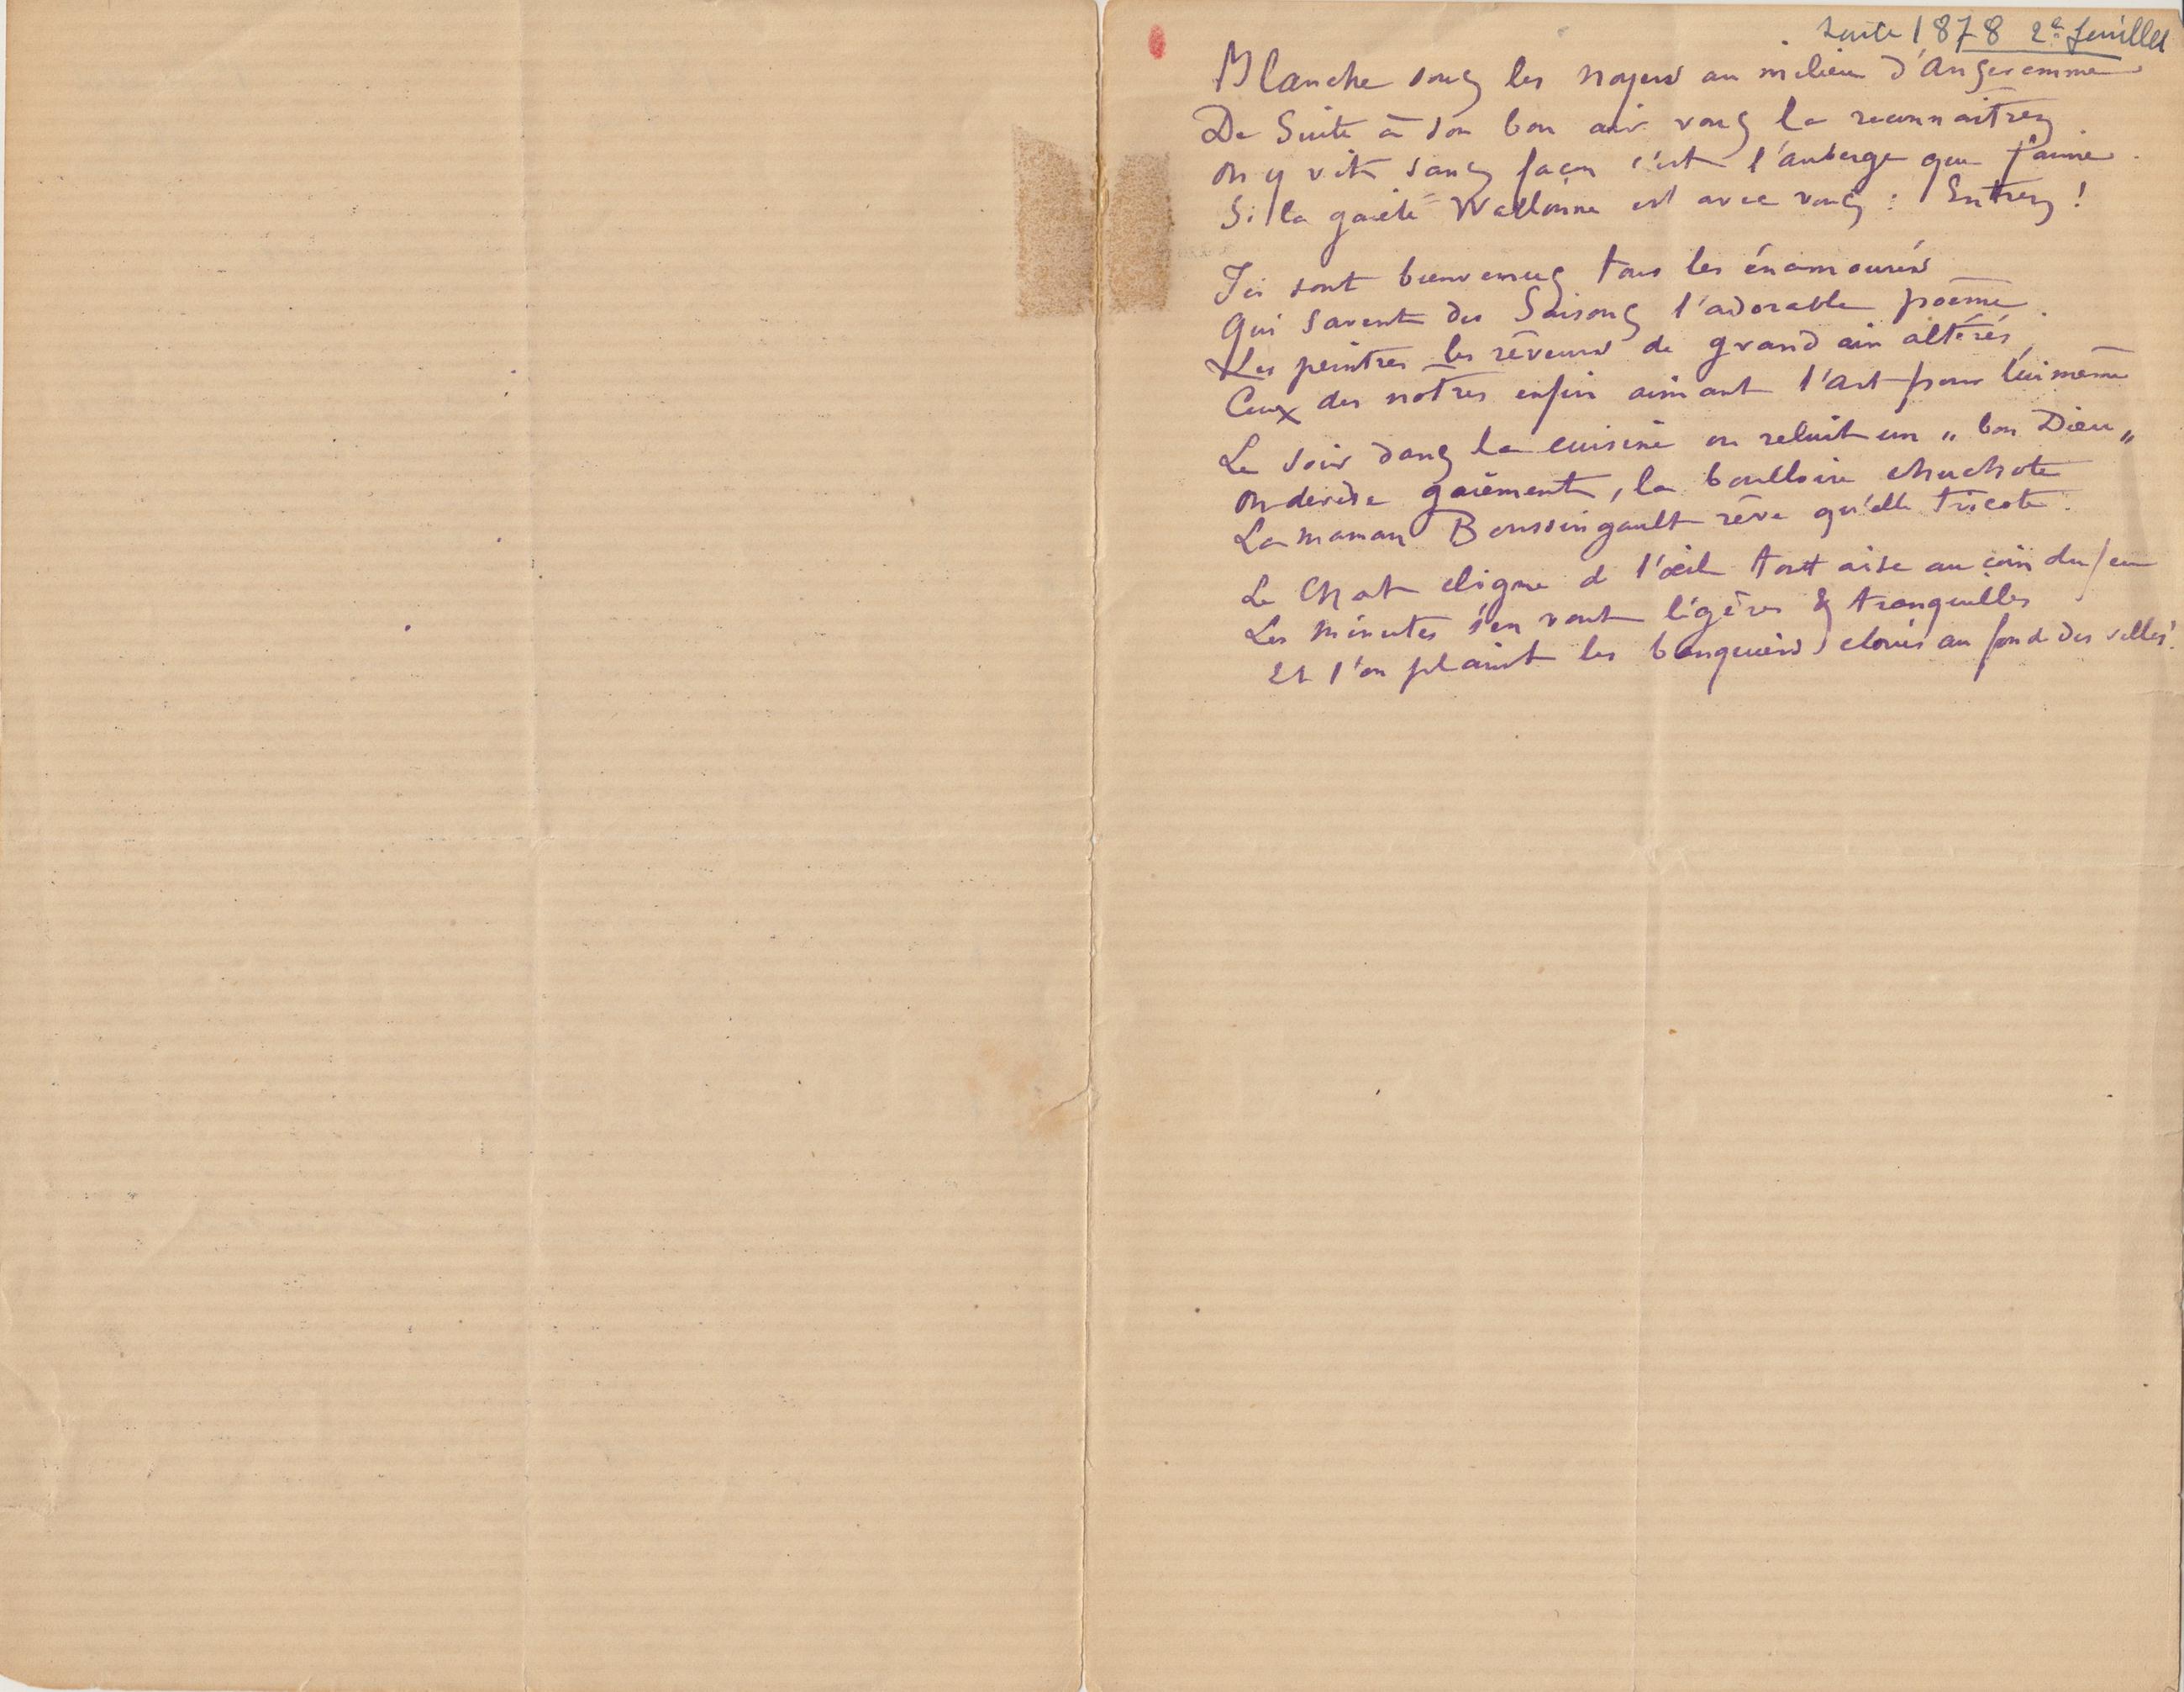 suite 1878 2e feuillet
Blanche sous les noyers au milieu d'Anseremme
De Suite à son bon air vous la reconnaitrez.
On y vit sans façon c'est l'auberge que j'aime.
Si la gaieté Wallonne est avec vous : Entrez !
Ici sont bienvenus tous les énamourés
Qui savent des Saisons l'adorable poème.
Les peintres les rêveurs de grand air altérés,
Ceux des notres enfin aimant l'Art pour lui même
Le soir dans la cuisine où reluit un „ bon Dieu „
On devise gaiement, la boulloire chuchote
La maman Boussingault rêve qu'elle tricote.
Le Chat cligne de l'œil tout aise au coin du feu
Les minutes s'en vont légères & tranquilles
Et l'on plaint les banquiers cloués au fond des villes!